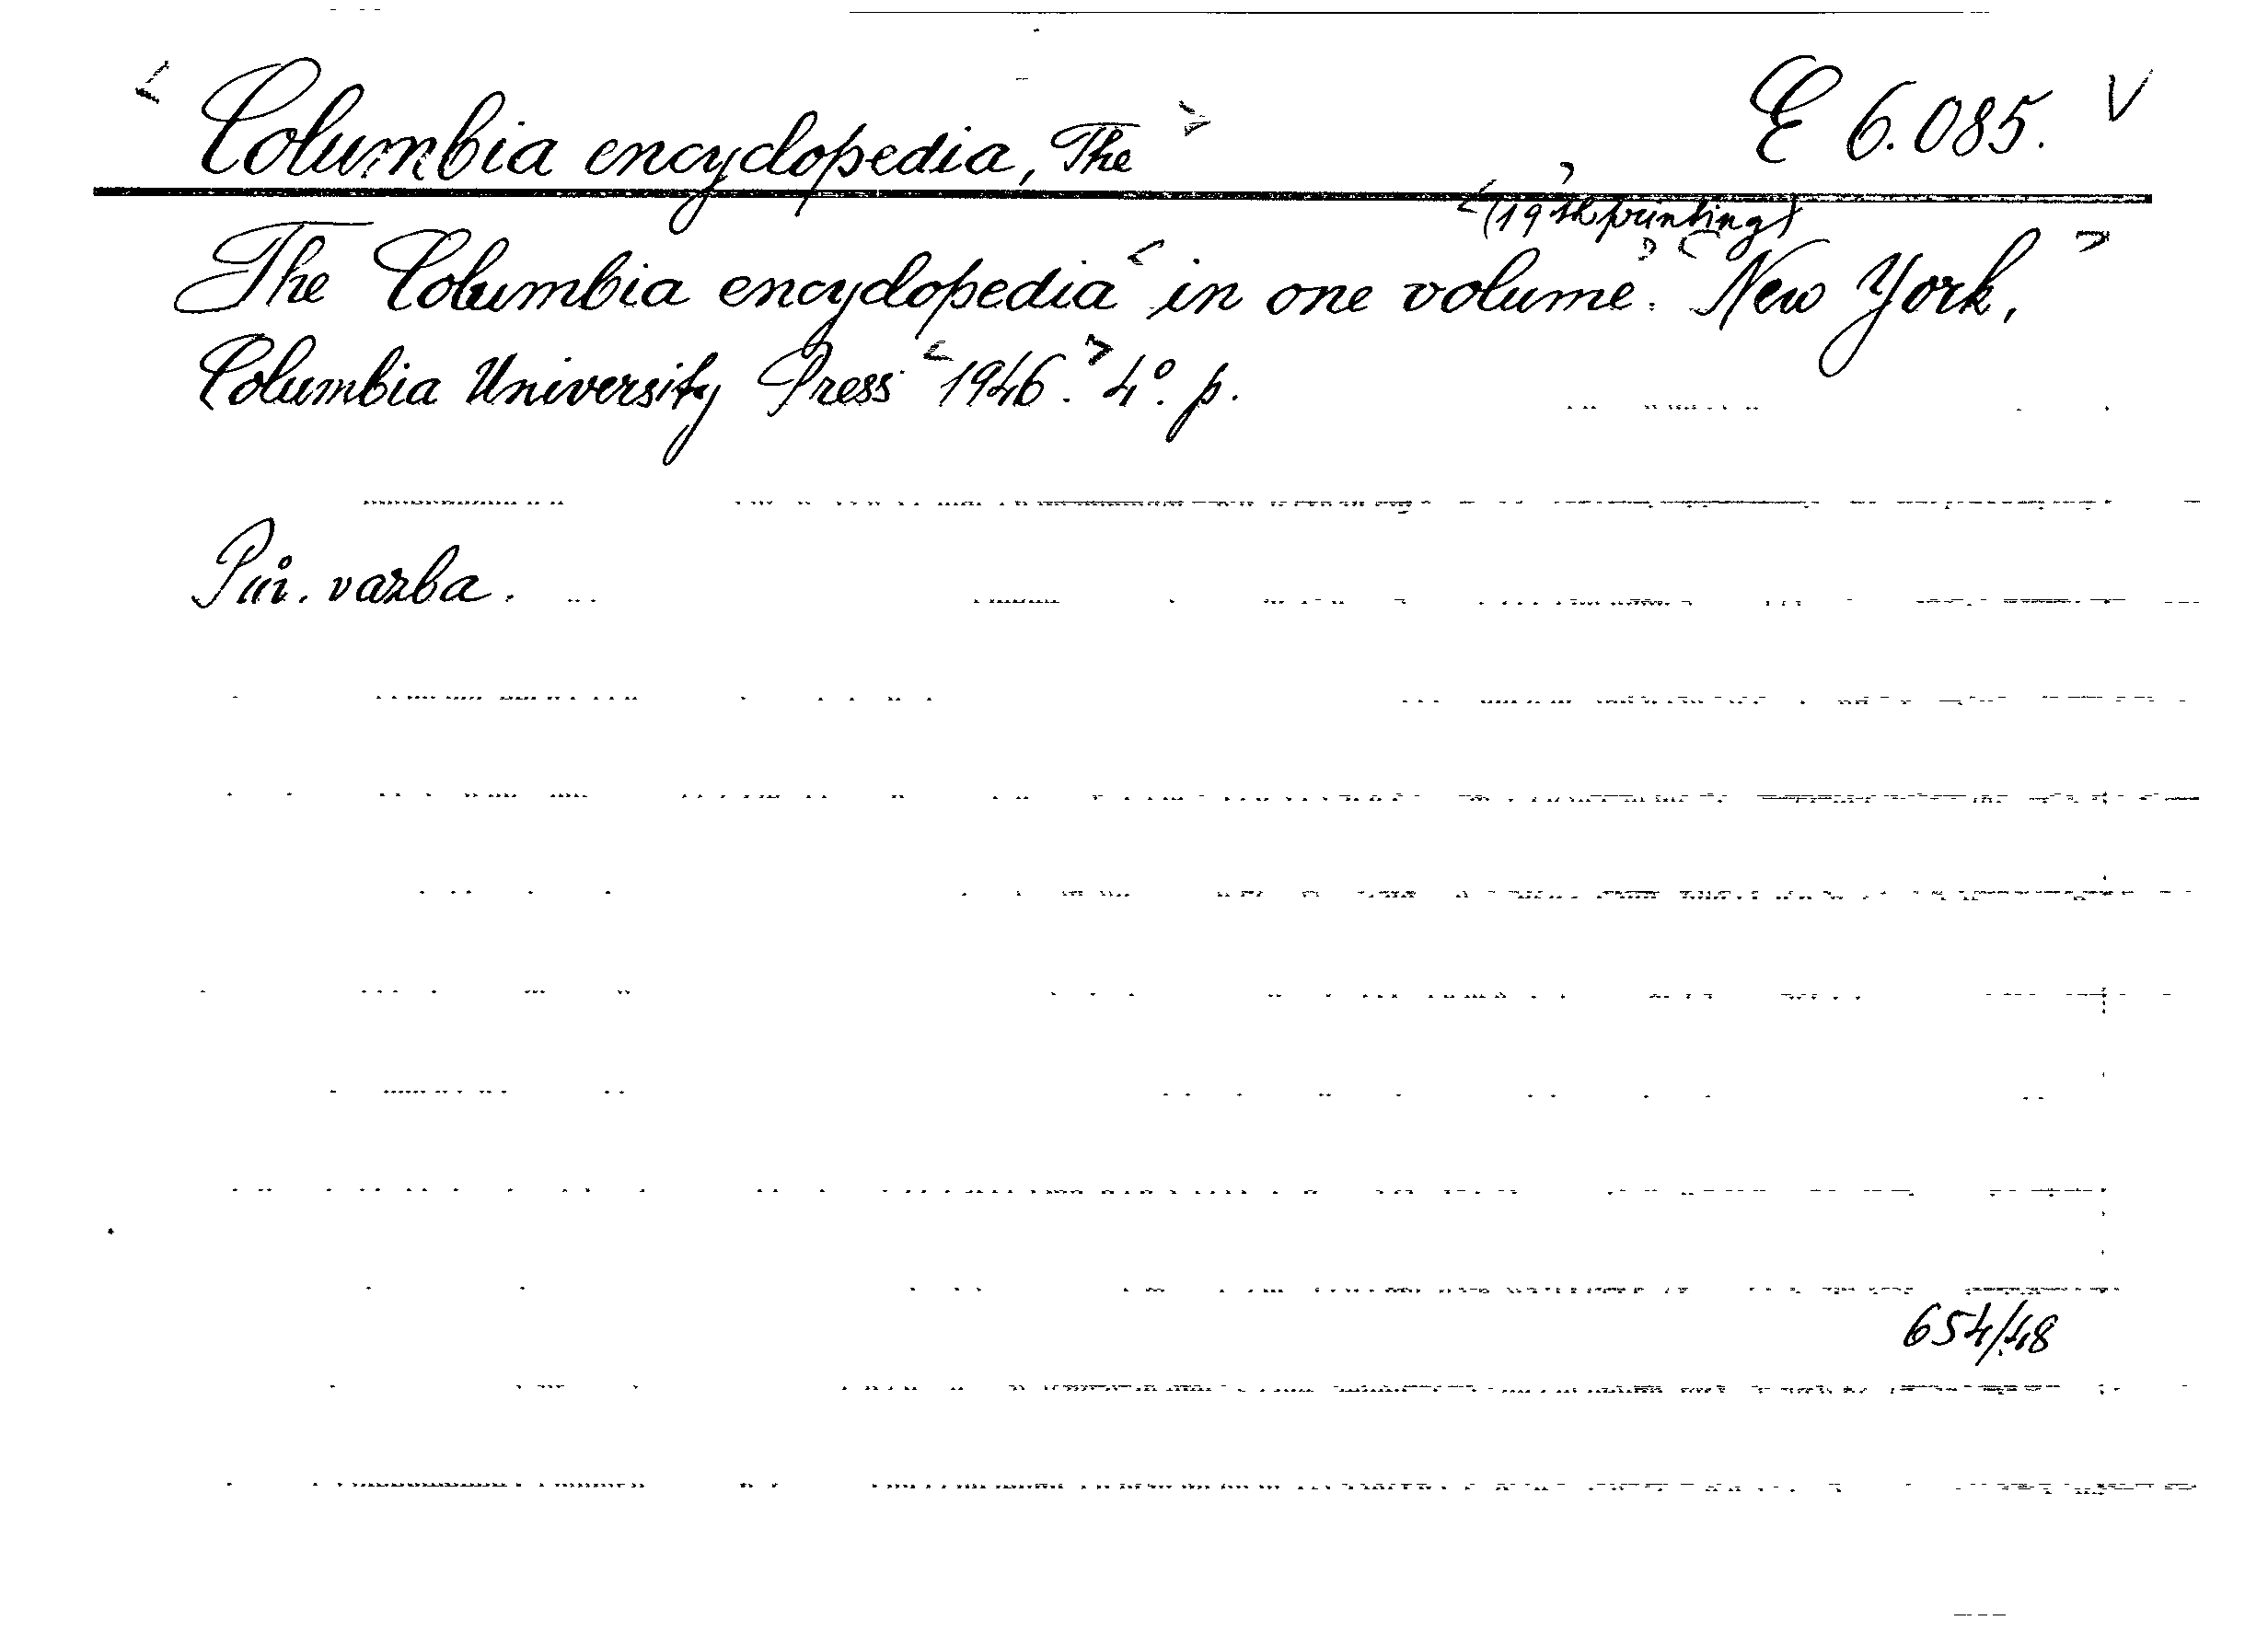 < Columbia encyclopedia, The > E 6.085. V
<(19th printing)>
The Columbia encyclopedia < in one volume. > < New York, >
Columbia University Press < 1946. > 4°. p.
Pův. vazba.
654/48